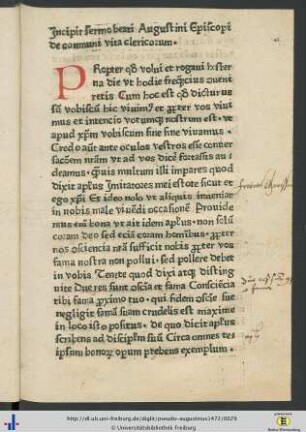 Incipit sermo beati Augustini Episcopi
de communi vita clericorum.
PRopter qd volui et rogavi hesterna
die vt hodie freq̄ncius oueni
retis Cum hoc est qd dicturus
sū vobiscū hic viuim⁹ et ꝓpter vos viui
mus et intencio votumqꝫ nostrum est . vt
apud xp̄m vobiscum sine fine viuamus .
Credo aūt ante oculos vestros esse conuer
sacōem nr̄am vt ad vos dicē fortassis au
deamus . quis multum illi impares quod
dixit apl̄us Imitatores mei estote sicut et
ego xp̄i Et ideo nolo vt aliquis inueniat
in nobis male viuēdi occasionē Prouide
mus em̄ bona vt ait idem apl̄us . non solū
coram deo sed eciā coram homībus . ꝓpter
nos osciencia nr̄a sufficit nobis ꝓpter vos
fama nostra non pollui . sed pollere debet
in vobis Tenete quod dixi atqꝫ disting
uite Due res sunt oscīa et fama Consciēcia
tibi fama ꝓximo tuo . qui fidens oscīe sue
negligit famā suam crudelis est maxime
in loco isto positus . de quo dicit apl̄us
scribens ad discipl̄m suū Circa omnes te
ipsum bonorꝫ opum prebens exemplum .
http://dl.ub.uni-freiburg.de/diglit/pseudo-augustinus1472/0029
© Universitätsbibliothek Freiburg